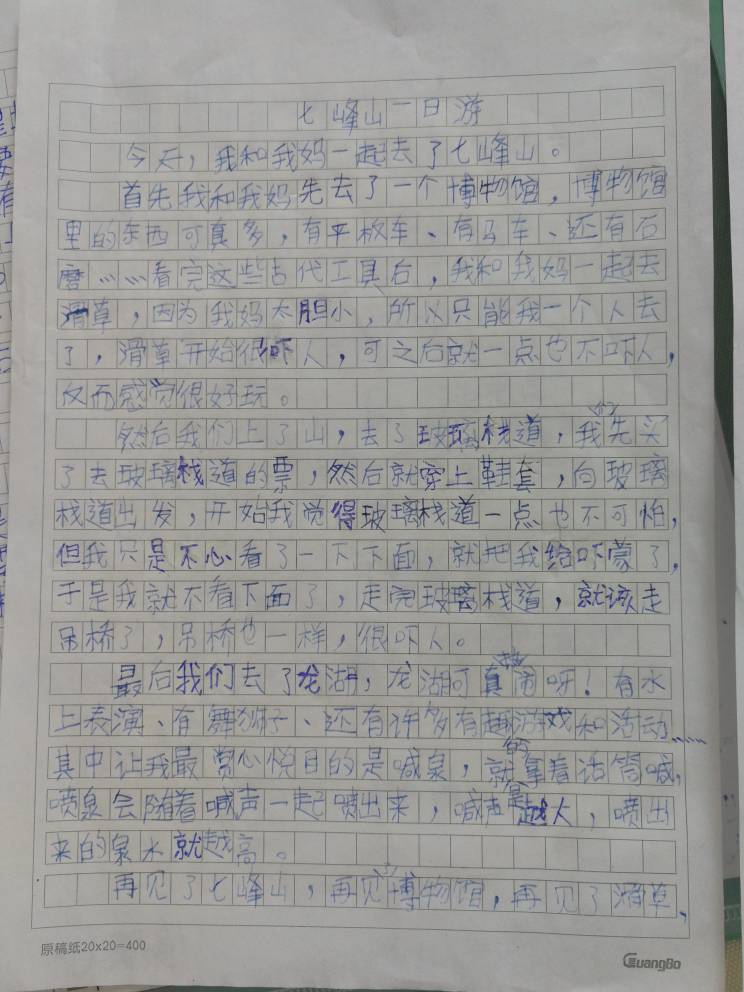 七峰山一日游
今天，我和我妈一起去了七峰山。
首先我和我妈先去了一个博物馆，博物馆
里的东西可真多，有平板车、有马车、还有石
磨……看完这些古代工具后，我和我妈一起去
滑草，因为我妈太胆小，所以只能我一个人去
了，滑草开始很吓人，可之后就一点也不吓人，
反而感觉很好玩。
然后我们上了山，去了玻璃栈道，我们先买
了去玻璃栈道的票，然后就穿上鞋套，向玻璃
栈道出发，开始我觉得玻璃栈道一点也不可怕，
但我只是不心看了一下下面，就把我给吓蒙了，
于是我就不看下面了，走完玻璃栈道，就该走
吊桥了，吊桥也一样，很吓人。
最后我们去了龙湖，龙湖可真热闹呀！有水
上表演、有舞狮子、还有许多有趣游戏和活动……
其中让我最赏心悦目的是喊泉，就是拿着话筒喊，
喷泉会随着喊声一起喷出来，喊声越大，喷出
来的泉水就越高。
再见了七峰山，再见了博物馆，再见了滑草、
原稿纸20x20=400
GuangBo